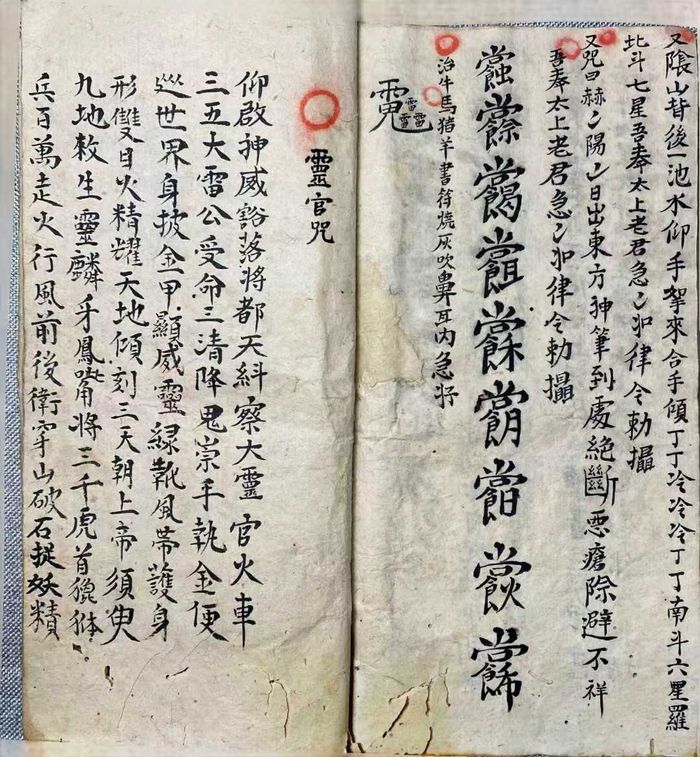 又陰山背後一池水仰手挐來合手傾丁丁冷冷冷丁丁南斗六星羅
北斗七星吾奉太上老君急〻如律令勅攝
又咒曰赫〻陽〻日出東方神筆到處絕斷惡瘡除避不祥
吾奉太上老君急〻如律令勅攝
治牛馬猪羊書符燒灰吹鼻耳內急
靈官咒
仰啟神威豁落將都天糾察大靈官火車
三五大雷公受命三清降鬼崇手執金便
巡世界身披金甲顯威靈綠靴風帶護身
形雙目火精耀天地傾刻三天朝上帝須臾
九地救生靈麟牙鳳嘴將三千虎首
兵百萬走火行風前後衛穿山破石捉妖精